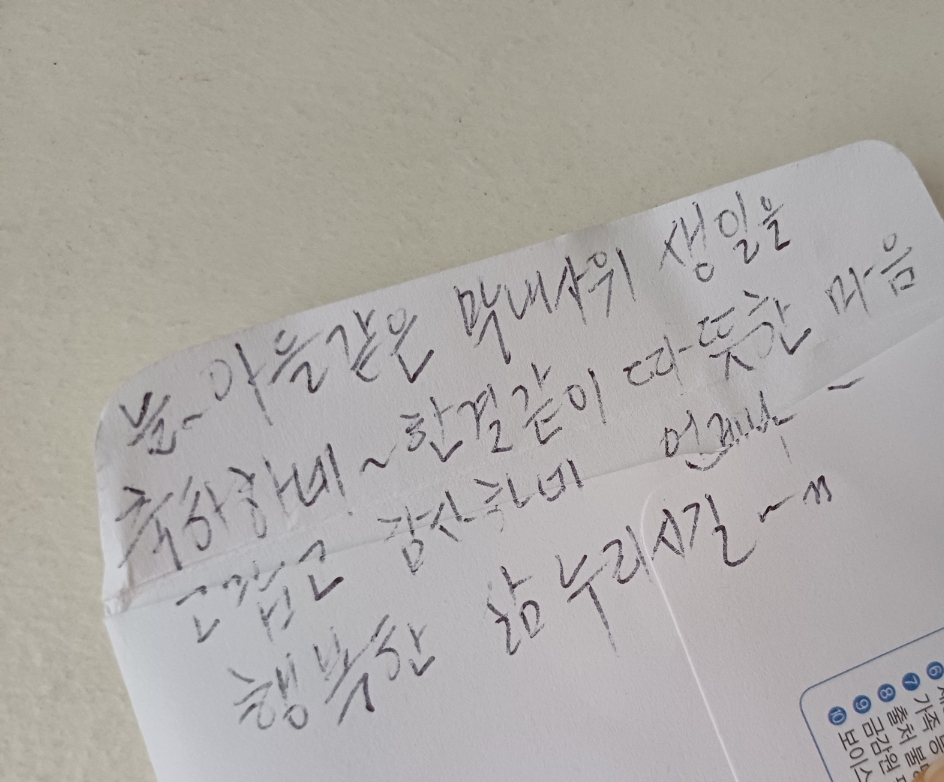 늘~ 아들같은 막내사위 생일을
축하하네~ 한결같이 따뜻한 마음
고맙고 감사하네 언제나 ~
행복한 삶 누리시길~"
⑥
⑦ 가족
⑧ 출처 불
⑨ 금감원
⑩ 보이스